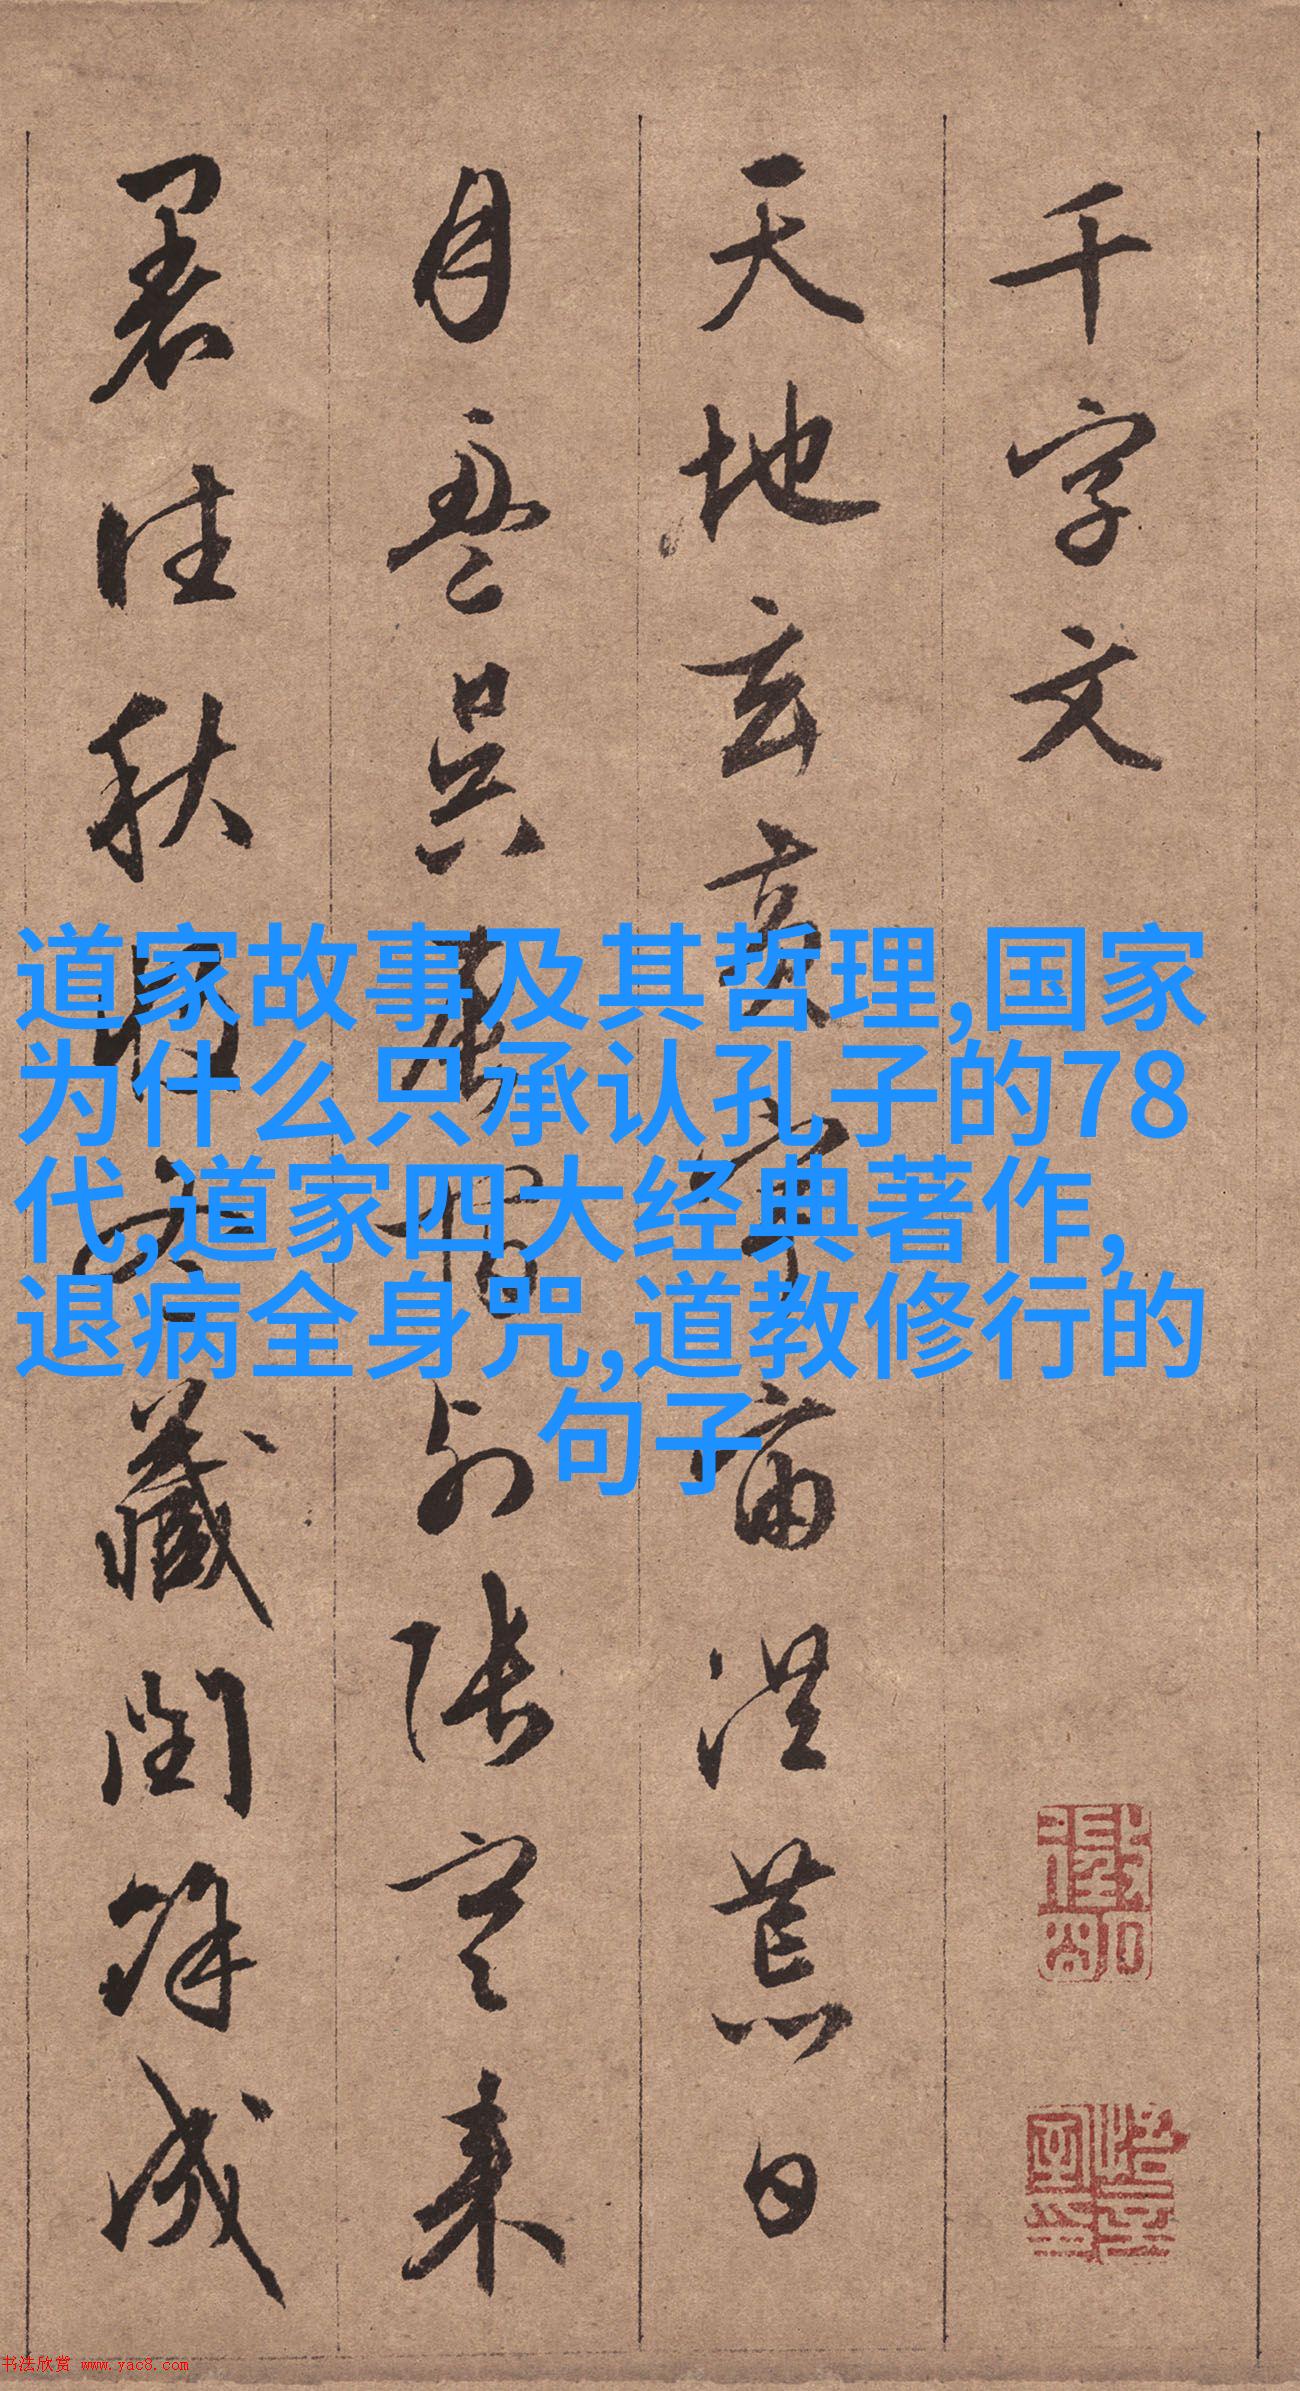 千字文
天地玄黄宇宙洪荒日
月盈昃辰宿列张寒来
暑往秋收冬藏闰余成
道家故事及其哲理,国家
为什么只承认孔子的78
代,道家四大经典著作,
退病全身咒,道教修行的
句子
书法欣赏 www.yac8.com